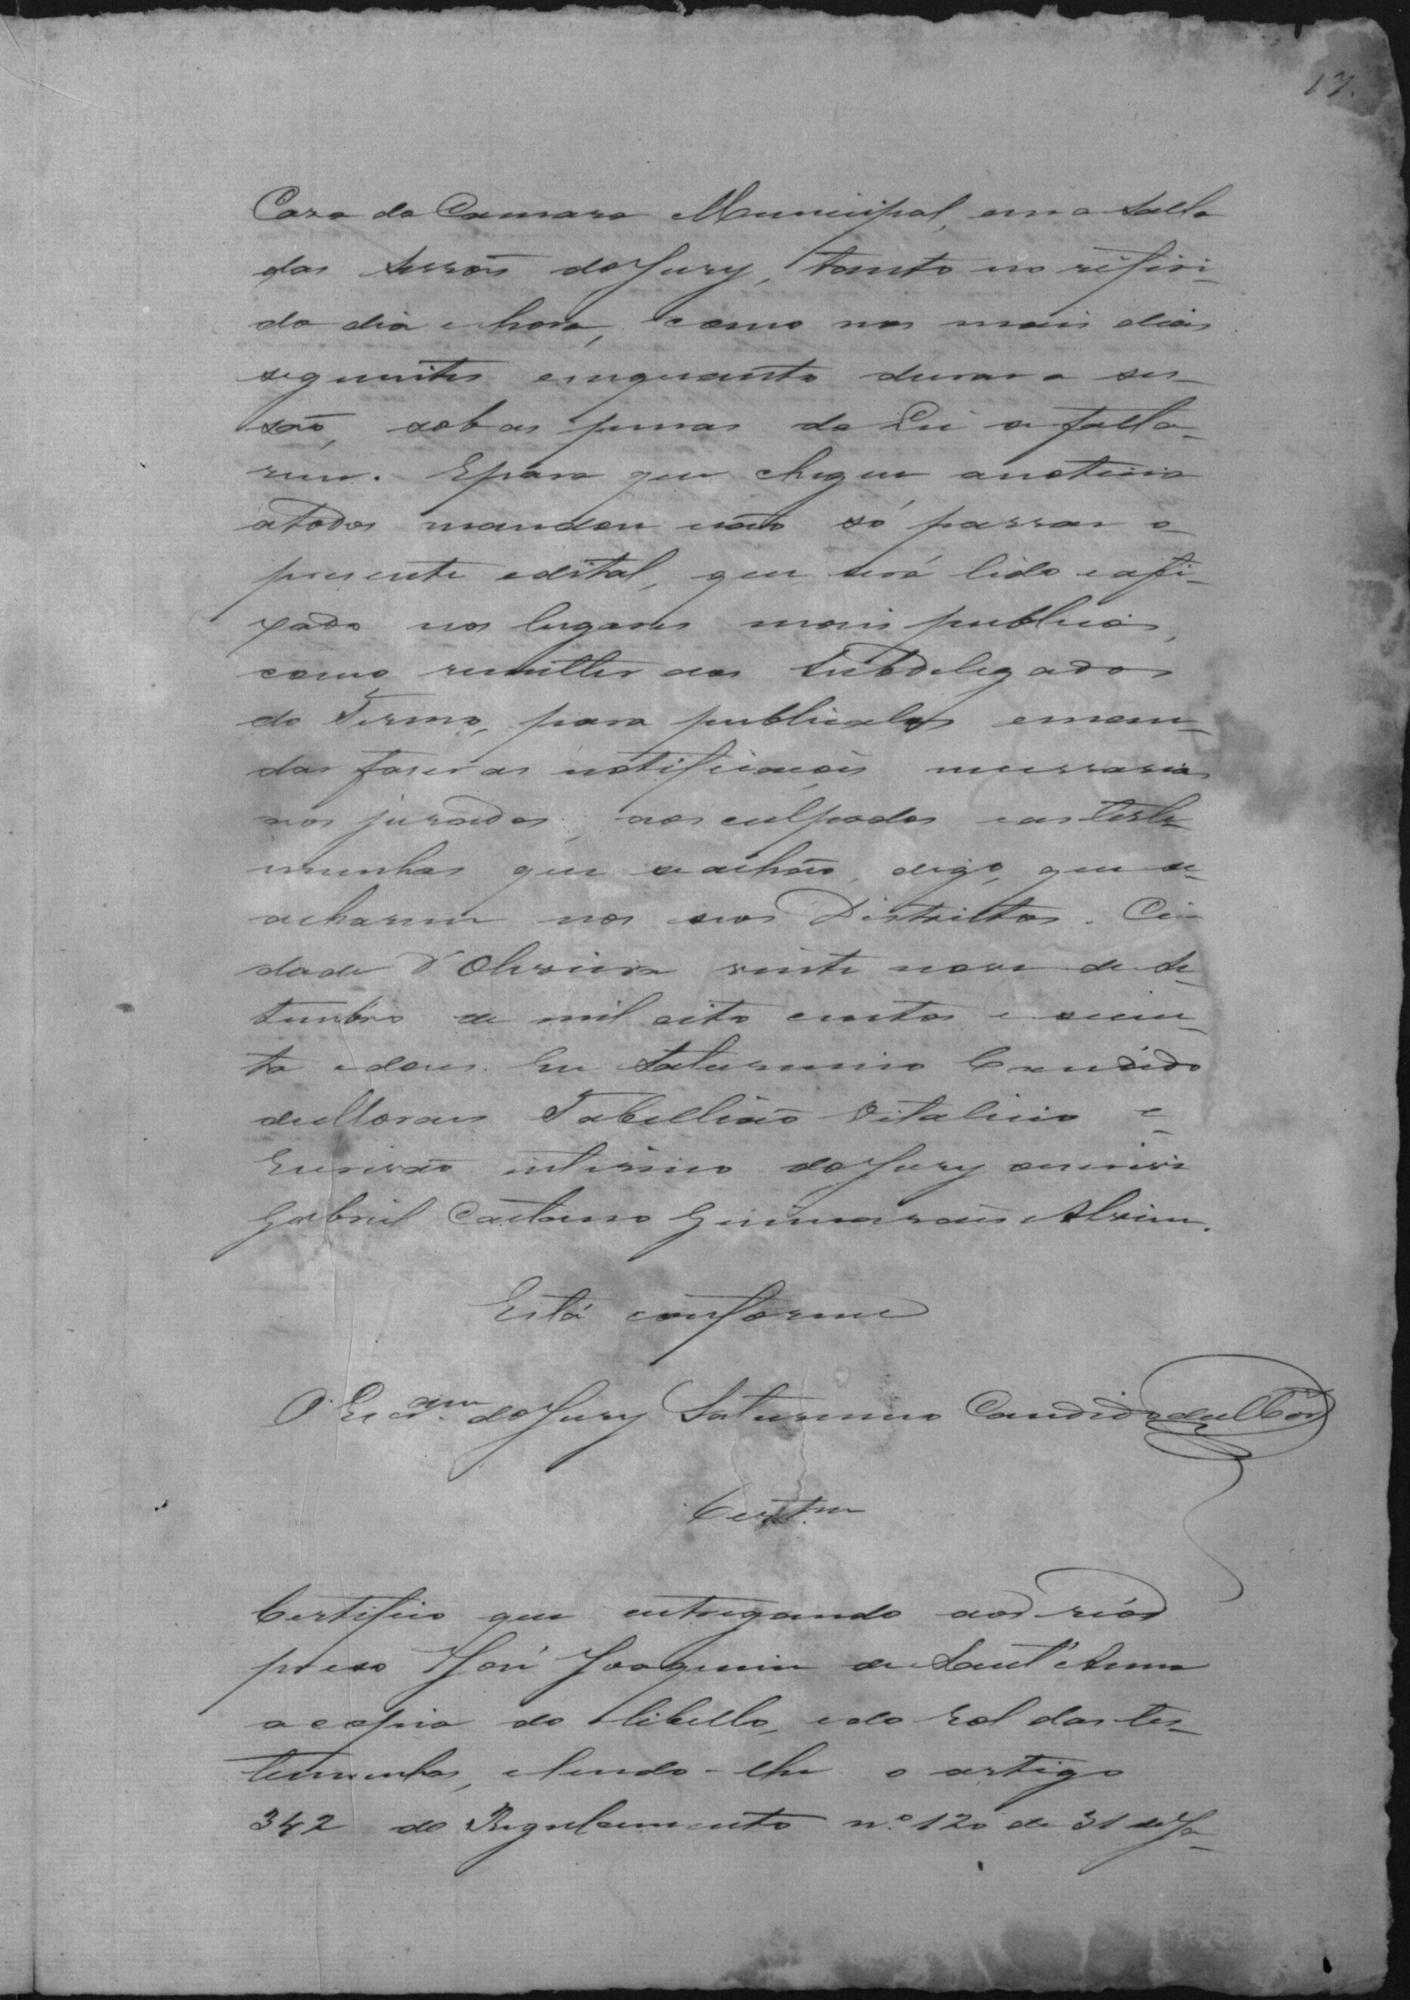 17.
Casa da Camara Municipal, em a Salla
das Sessoẽs do Jury, tanto no referi-
do dia e hora, como nos mais dias
seguintes emquanto durar a ses-
saõ, sob as penas da Lei se falta-
rem. E para que chegue a noticia
a todos mandou não só passar o
presente edital, que será lido e afi-
xado nos lugares mais publicos,
como remetter aos Subdelegados
do Termo, para publical-os e man-
dar fazer as notificaçoẽs necessarias
aos jurados, aos culpados e as teste-
munhas que se achão, digo, que se
acharem nos seos Districtos. Ci-
dade d'Oliveira vinte nove de Se-
tembro de mil oito centos e oiten-
ta e dous. Eu Saturnino Candido
de Moraes Tabellião Vitalicio e
Escrivão interino do Jury escrevi
Gabriel Caetano Guimaraẽs Alvim.
Está conforme
O Escr.am do Jury Saturnino Candido de Mor.es
Cert.am
Certifico que entregando aos réos
preso José Joaquim de Sant'Anna
a copia do libello, e do rol das tes-
temunhas, e lendo-lhe o artigo
342 do Regulamento n.º 120 de 31 de Ja-